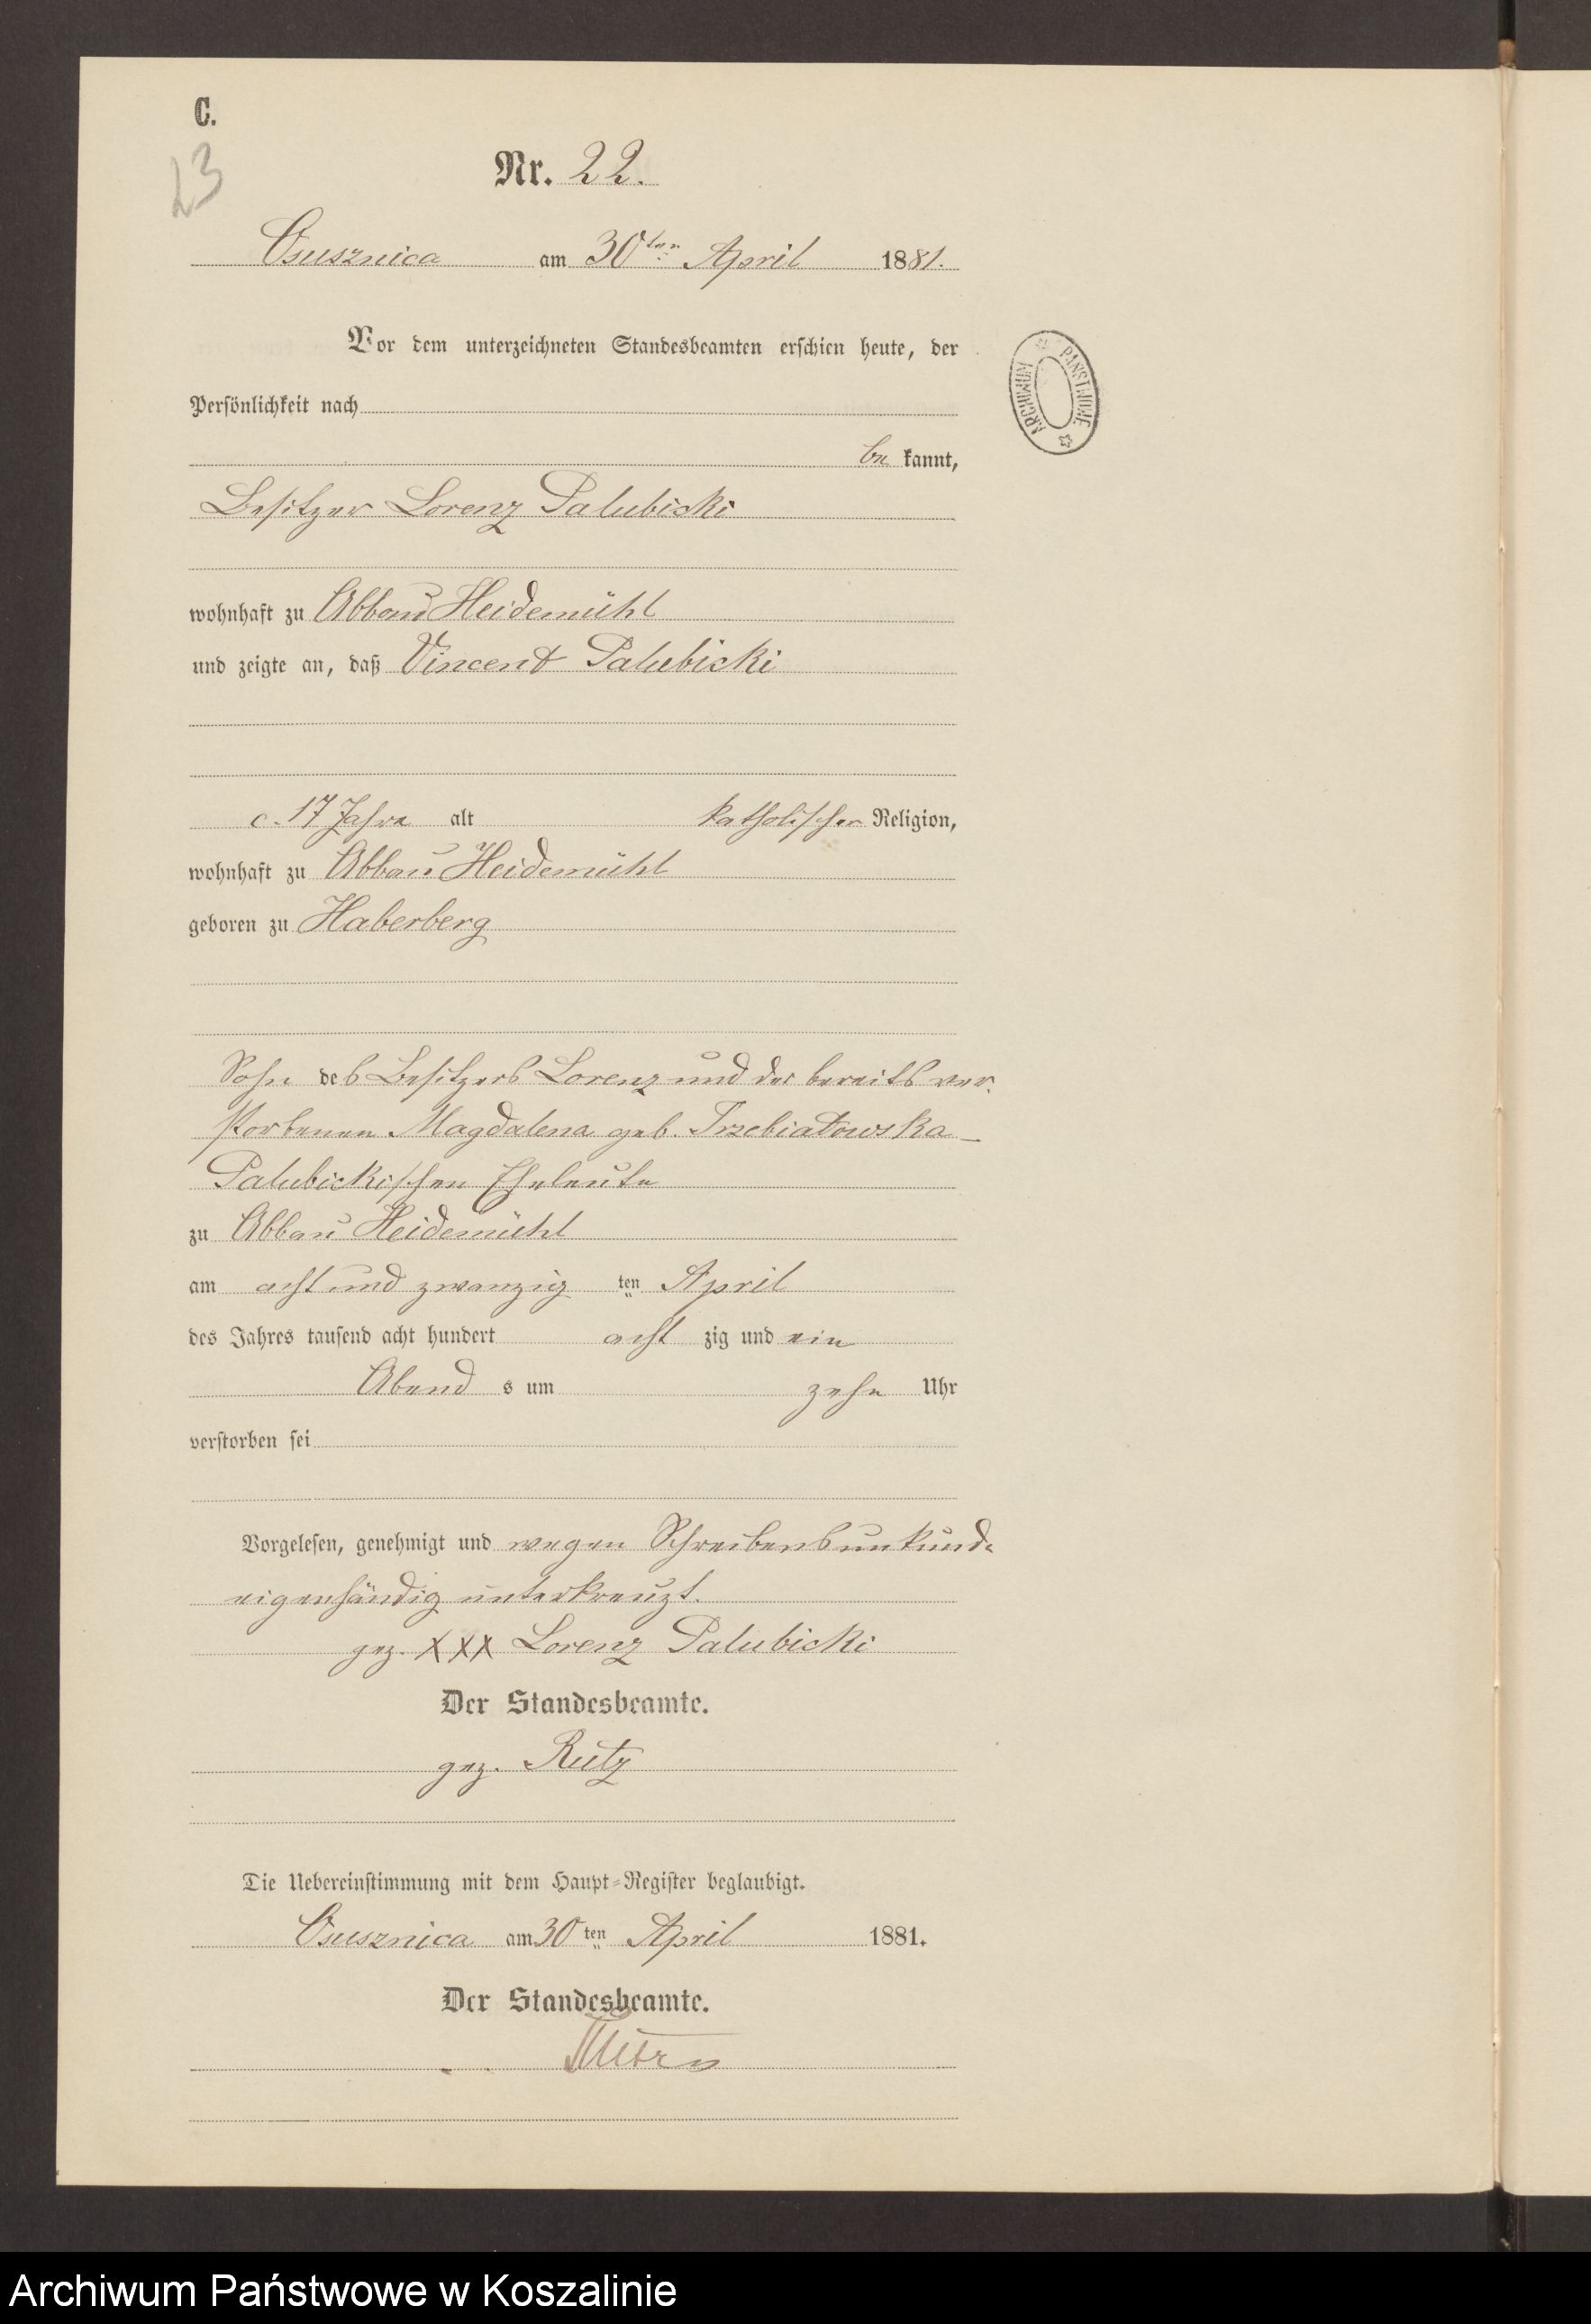 C.
23
Nr. 22.
Osusznica am 30ten April 1881.
Vor dem unterzeichneten Standesbeamten erschien heute, der
Persönlichkeit nach
be kannt,
Besitzer Lorenz Palubicki
wohnhaft zu Abbau Heidemühl
und zeigte an, daß Vincent Palubicki
c. 17 Jahre alt katholischer Religion,
wohnhaft zu Abbau Heidemühl
geboren zu Haberberg
Sohn des Besitzers Lorenz und der bereits ver-
storbenen Magdalena geb. Trzebiatowska-
Palubickischen Eheleute
zu Abbau Heidemühl
am acht und zwanzig ten April
des Jahres tausend acht hundert acht zig und ein
Abend s um zehn Uhr
verstorben sei
Vorgelesen, genehmigt und wegen Schreibensunkunde
eigenhändig unterkreuzt.
gez. XXX Lorenz Palubicki
Der Standesbeamte.
gez. Rutz
Die Uebereinstimmung mit dem Haupt-Register beglaubigt.
Osusznica am 30 ten April 1881.
Der Standesbeamte.
ARCHIWUM PAŃSTWOWE
Archiwum Państwowe w Koszalinie